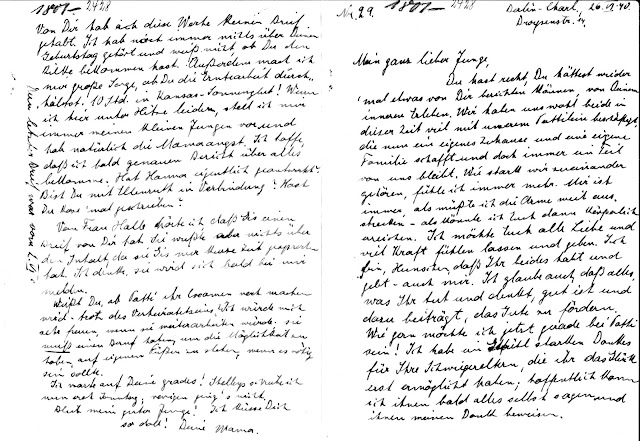 1801- 2428
Von Dir hab ich diese Woche keinen Brief
gehabt. Ich hab noch immer nichts über Deinen
Geburtstag gehört und weiß nicht ob Du den
bekommen hast. Außerdem mach ich
mir große Sorge, ob Du die Erntearbeit durch-
hältst. 10 Std. in Kansas-Sonnenglut! Wenn
ich hier unter Hitze leide, stell ich mir
immer meinen kleinen Jungen vor und
hab natürlich die Mamaangst. Ich hoffe,
daß ich bald genauen Bericht über alles
bekomme. Hat Hanna eigentlich geantwortet?
Bist Du mit Ulenruth in Verbindung? Hast
Du mal geschrieben?
Von Frau Halle hörte ich, daß sie einen
Brief von Dir hab. Sie wußte aber nichts über
den Inhalt, da sie nur kurze Zeit gesprochen
hat. Ich denke, sie wird sich bald bei mir
melden.
Weißt Du, ob Patti ihr Examen noch machen
wird - trotz des Verheiratetseins? Ich würde mich
sehr freuen, wenn sie weiterarbeiten würde. Sie
muß einen Beruf haben, um die Möglichkeit zu
haben, auf eigenen Füßen zu stehen, wenn es nötig
sein sollte.
Ich warte auf Deine grades! Shelbys schreibe ich
nun erst Sonntag; vorigen ging's nicht.
Bleib mein guter Junge! Ich küsse Dich
so doll! Deine Mama.
Dein letzter Brief war vom
Nr. 29. 1801- 2428 Berlin-Charl., 26. 40.
Mein ganz lieber Junge,
Du hast recht, Du hättest wieder
mal etwas von Dir berichten können, von Deinem
inneren Erleben. Wir haben uns wohl beide in
dieser Zeit viel mit unserem Pattilein beschäftigt,
die nun ein eigenes Zuhause und eine eigene
Familie schafft und doch immer ein Teil
von uns bleibt. Wie stark wir zueinander
gehören, fühle ich immer mehr. Mir ist
immer, als müßte ich die Arme weit aus-
strecken - als könnte ich Euch dann körperlich
erreichen. Ich möchte Euch alle Liebe und
viel Kraft fühlen lassen und geben. Ich
bin, daß Ihr beides habt und
gebt - auch mir. Ich glaube auch, daß alles,
was Ihr tut und denkt, gut ist und
dazu beiträgt, das Gute zu fördern.
Wie gern möchte ich jetzt gerade bei Patti
sein! Ich habe ein Gefühl starken Dankes
für Ihre Schwiegereltern, die ihr das Glück
erst ermöglicht haben; hoffentlich kann
ich ihnen bald alles selbst sagen und
ihnen meinen Dank beweisen.